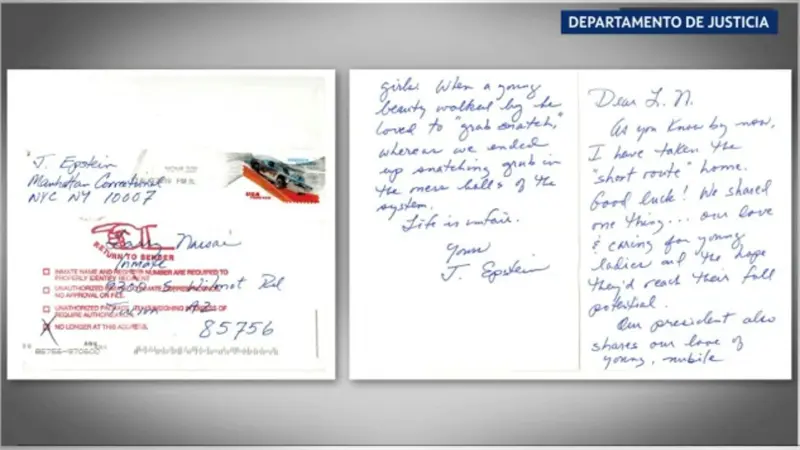 DEPARTAMENTO DE JUSTICIA
J. Epstein
Manhattan Correctional
NYC NY 10007
RETURN TO SENDER
Larry Nassar
Inmate
9300 S. Wilmot Rd
Tucson AZ
85756
INMATE NAME AND REGISTER NUMBER ARE REQUIRED TO
PROPERLY IDENTIFY
UNAUTHORIZED
NO APPROVAL ON FILE.
UNAUTHORIZED
REQUIRE
NO LONGER AT THIS ADDRESS.
girls. When a young
beauty walked by he
loved to "grab snatch,"
whereas we ended
up snatching grub in
the mess halls of the
system.
Life is unfair.
Yours
J. Epstein
Dear L. N.
As you know by now,
I have taken the
"short route" home.
Good luck! We shared
one thing... our love
& caring for young
ladies and the hope
they'd reach their full
potential.
Our president also
shares our love of
young, nubile